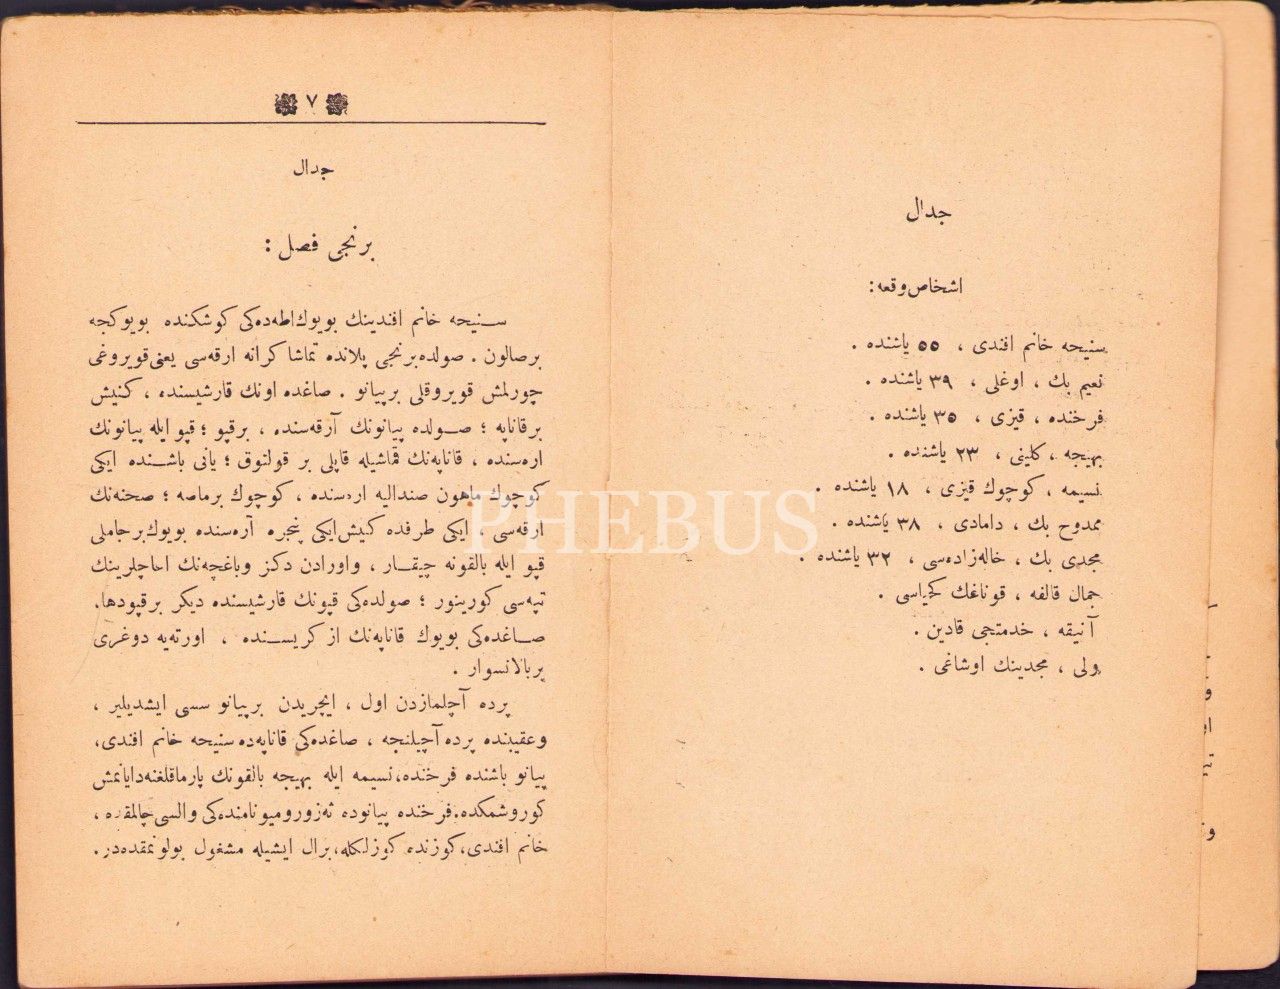 جدال
اشخاص وقعه:
سنیحه خانم افندی ، ٥٥ یاشنده .
نعیم بك ، اوغلی ، ٣٩ یاشنده .
فرخنده ، قیزی ، ٣٥ یاشنده .
بهیجه ، کلینی ، ٢٣ یاشنده .
نسیمه ، کوچوك قیزی ، ١٨ یاشنده .
ممدوح بك ، دامادی ، ٣٨ یاشنده .
مجدی بك ، خاله‌زاده‌سی ، ٣٢ یاشنده .
جمال قالفه ، قوناغك کحیاسی .
آنیقه ، خدمتجی قادین .
ولی ، مجدینك اوشاغی .
٧
جدال
برنجی فصل :
سنیحه خانم افندینك بویوك اطه‌ده‌کی کوشکنده بویوکجه
برصالون . صولده برنجی پلانده تماشا کرانه ارقه‌سی یعنی قویروغی
چورلمش قویروقلی برپیانو . صاغده اونك قارشیسنده ، کنیش
برقاناپه ؛ صولده پیانونك آرقه‌سنده ، برقپو ؛ قپو ایله پیانونك
اره‌سنده ، قاناپه‌نك قماشیله قاپلی بر قولتوق ؛ یانی باشنده ایکی
کوچوك ماهون صندالیه اره‌سنده ، کوچوك برماصه ؛ صحنه‌نك
ارقه‌سی ، ایکی طرفده کنیش ایکی پنجره آره‌سنده بویوك برجاملی
قپو ایله بالقونه چیقار ، واورادن دکز وباغچه‌نك اغاجلرینك
تپه‌سی کورینور ؛ صولده‌کی قپونك قارشیسنده دیکر برقپودها.
صاغده‌کی بویوك قاناپه‌نك از کریسنده ، اورته‌یه دوغری
بربالانسوار .
پرده آچلمازدن اول ، ایچریدن برپیانو سسی ایشدیلیر ،
وعقیبنده پرده آچیلنجه ، صاغده‌کی قاناپه‌ده سنیحه خانم افندی،
پیانو باشنده فرخنده، نسیمه ایله بهیجه بالقونك پارماقلغنه دایانمش
کوروشمکده. فرخنده پیانوده ئه‌زورومیو نامنده‌کی والسی چالمقده ،
خانم افندی، کوزنده کوزلکله، برال ایشیله مشغول بولونمقده‌در.
PHEBUS